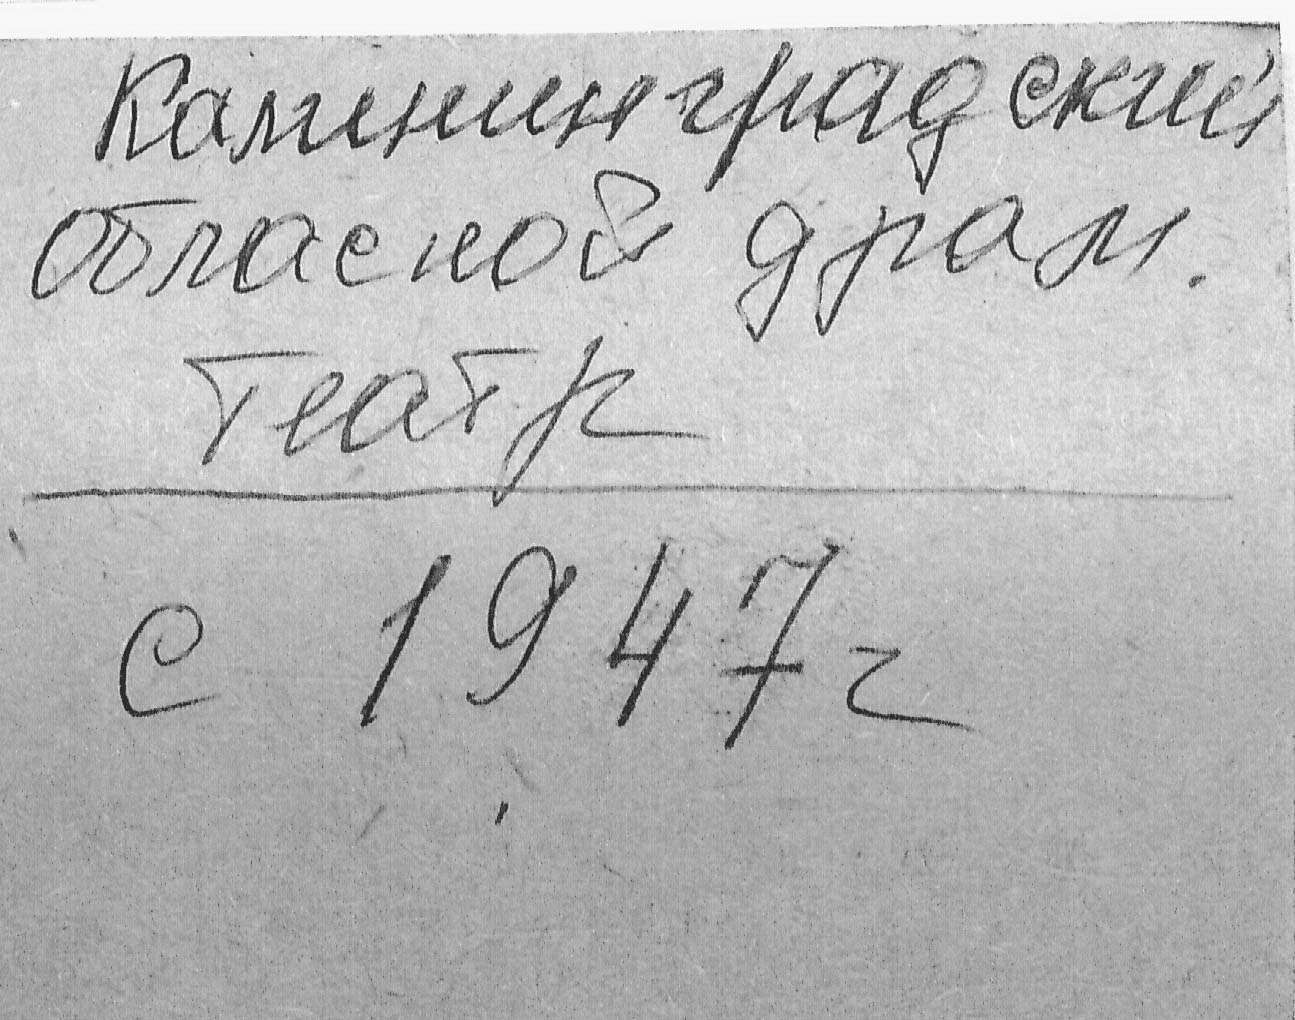 Калининградский
обласной драм.
театр
с 1947 г